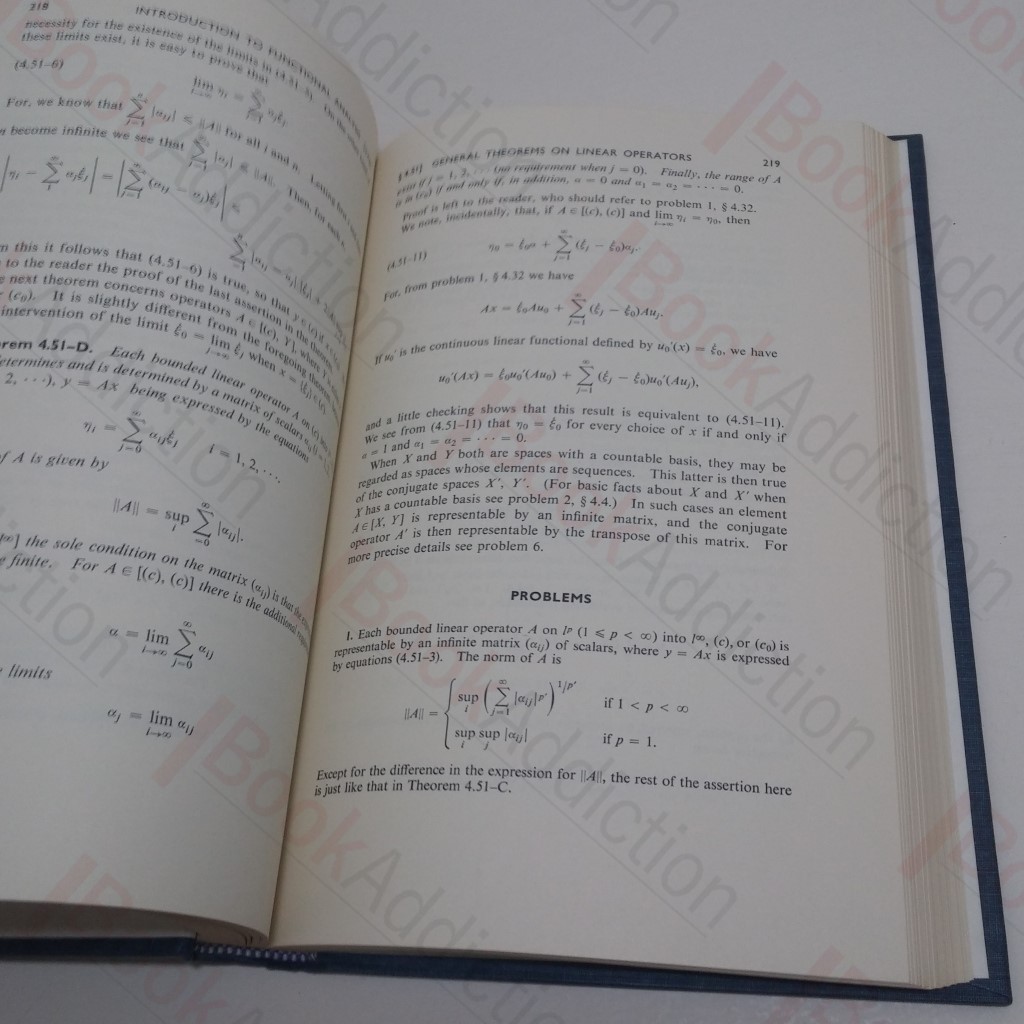 INTRODUCTION TO FUNCTIONAL ANALYSIS
necessity for the existence of the limits in (4.51-5). On the
these limits exist, it is easy to prove that
(4.51–6)
lim ηi = Σ αjξj
For, we know that Σ |αij| ≤ ||A|| for all i and n. Letting first
become infinite we see that Σ |αj| ≤ ||A||. Then, for
|ηi − Σ αjξj| = |Σ (αij − αj)ξj|
this it follows that (4.51–6) is true, so that y ∈ (c) if x ∈
to the reader the proof of the last assertion in the
next theorem concerns operators A ∈ [(c), Y], where
(c0). It is slightly different from the foregoing theorem
intervention of the limit ξ0 = lim ξj when x = {ξj} ∈ (c).
j→∞
Theorem 4.51–D. Each bounded linear operator A on (c)
determines and is determined by a matrix of scalars αij
2, ···), y = Ax being expressed by the equations
ηi = ∞Σj=0 αijξj i = 1, 2, ···.
of A is given by
||A|| = sup i ∞Σ=0 |αij|.
the sole condition on the matrix (αij) is that the
finite. For A ∈ [(c), (c)] there is the additional
α = lim i→∞ ∞Σj=0 αij
limits
αj = lim i→∞ αij
GENERAL THEOREMS ON LINEAR OPERATORS 219
exist if j = 1, 2, ··· (no requirement when j = 0). Finally, the range of A
is in (c0) if and only if, in addition, α = 0 and α1 = α2 = ··· = 0.
Proof is left to the reader, who should refer to problem 1, § 4.32.
We note, incidentally, that, if A ∈ [(c), (c)] and lim i→∞ ηi = η0, then
(4.51–11) η0 = ξ0α + ∞Σj=1 (ξj − ξ0)αj.
For, from problem 1, § 4.32 we have
Ax = ξ0Au0 + ∞Σj=1 (ξj − ξ0)Auj.
If u0′ is the continuous linear functional defined by u0′(x) = ξ0, we have
u0′(Ax) = ξ0u0′(Au0) + ∞Σj=1 (ξj − ξ0)u0′(Auj),
and a little checking shows that this result is equivalent to (4.51–11).
We see from (4.51–11) that η0 = ξ0 for every choice of x if and only if
α = 1 and α1 = α2 = ··· = 0.
When X and Y both are spaces with a countable basis, they may be
regarded as spaces whose elements are sequences. This latter is then true
of the conjugate spaces X′, Y′. (For basic facts about X and X′ when
X has a countable basis see problem 2, § 4.4.) In such cases an element
A ∈ [X, Y] is representable by an infinite matrix, and the conjugate
operator A′ is then representable by the transpose of this matrix. For
more precise details see problem 6.
PROBLEMS
1. Each bounded linear operator A on lᵖ (1 ≤ p < ∞) into l∞, (c), or (c0) is
representable by an infinite matrix (αij) of scalars, where y = Ax is expressed
by equations (4.51–3). The norm of A is
||A|| = { sup i (∞Σj=1 |αij|p′)1/p′ if 1 < p < ∞
sup i sup j |αij| if p = 1.
Except for the difference in the expression for ||A||, the rest of the assertion here
is just like that in Theorem 4.51–C.
BookAddiction